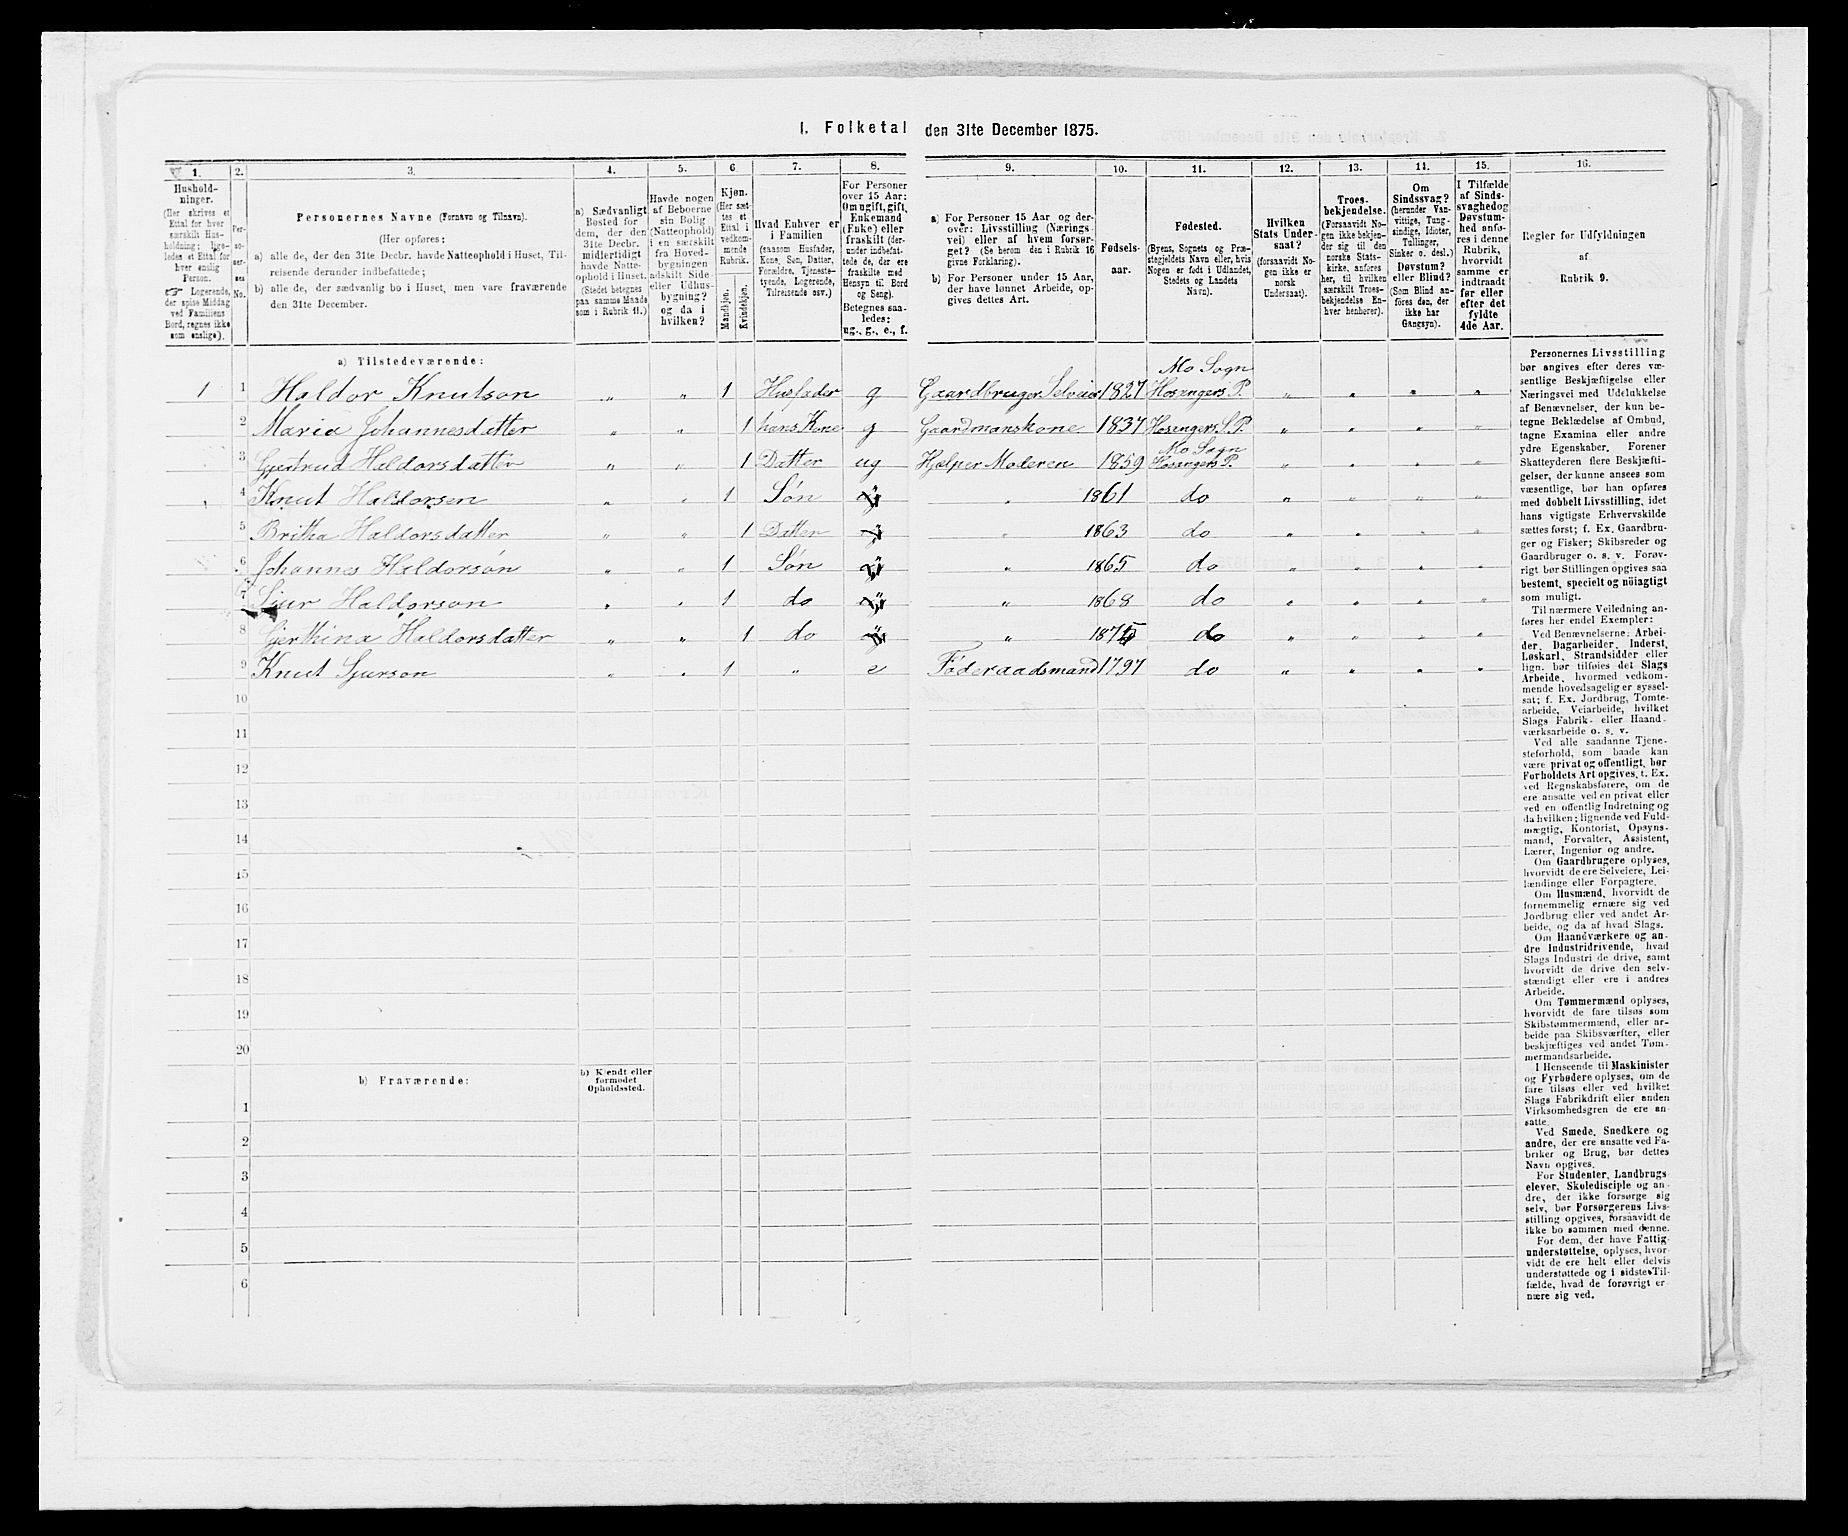 1. Folketal den 31te December 1875.
1. 2. 3. 4. 5. 6. 7. 8. 9. 10. 11. 12. 13. 14. 15. 16.
Hushold-
ninger.
(Her skrives et
Ettal for hver
særskilt Hus-
holdning; lige-
ledes et Ettal for
hver enslig
Person.
☞ Logerende,
der spise Middag
ved Familiens
Bord, regnes ikke
som enslige).
Per-
so-
ner-
nes
No.
Personernes Navne (Fornavn og Tilnavn).
(Her opføres:
a) alle de, der den 31te Decbr. havde Natteophold i Huset, Til-
reisende derunder indbefattede;
b) alle de, der sædvanlig bo i Huset, men vare fraværende
den 31te December.
a) Sædvanligt
Bosted for
dem, der den
31te Decbr.
midlertidigt
havde Natte-
ophold i Huset.
(Stedet betegnes
paa samme Maade
som i Rubrik 11.)
Havde nogen
af Beboerne
sin Bolig
(Natteophold)
i en særskilt
fra Hoved-
bygningen
adskilt Side-
eller Udhus-
bygning?
og da i
hvilken?
Kjøn.
(Her sæt-
tes et
Ettal i
vedkom-
mende
Rubrik.
Mandkjøn.
Kvindekjøn.
Hvad Enhver er
i Familien
(saasom Husfader,
Kone, Søn, Datter,
Forældre, Tjeneste-
tyende, Logerende,
Tilreisende osv.)
For Personer
over 15 Aar:
Om ugift, gift,
Enkemand
(Enke) eller
fraskilt (der-
under indbefat-
tede de, der ere
fraskilte med
Hensyn til Bord
og Seng).
Betegnes saa-
ledes:
ug., g., e., f.
a) For Personer 15 Aar og der-
over: Livsstilling (Nærings-
vei) eller af hvem forsør-
get? (Se herom den i Rubrik 16
givne Forklaring).
b) For Personer under 15 Aar,
der have lønnet Arbeide, op-
gives dettes Art.
Fødsels-
aar.
Fødested.
(Byens, Sognets og Præ-
stegjeldets Navn eller, hvis
Nogen er født i Udlandet,
Stedets og Landets
Navn).
Hvilken
Stats Under-
saat?
(forsaavidt No-
gen ikke er
norsk
Undersaat).
Troes-
bekjendelse.
(Forsaavidt No-
gen ikke bekjen-
der sig til den
norske Stats-
kirke, anføres
her, til hvilken
særskilt Troes-
bekjendelse En-
hver henhører).
Om
Sindssvag?
(herunder Van-
vittige, Tung-
sindige, Idioter,
Tullinger,
Sinker o. desl.)
Døvstum?
eller Blind?
(Som Blind an-
føres den, der
ikke har
Gangsyn).
I Tilfælde
af Sinds-
svaghed og
Døvstum-
hed anfø-
res i denne
Rubrik,
hvorvidt
samme er
indtraadt
før eller
efter det
fyldte
4de Aar.
Regler for Udfyldningen
af
Rubrik 9.
a) Tilstedeværende:
Mo Sogn
1 1 Haldor Knutson „ „ 1 Husfader g Gaardbruger Selveier 1827 Hosengers P. „ „ „ „
2 Maria Johannesdatter „ „ 1 hans Kone g Gaardmanskone 1837 Hosengers S. P. „ „ „ „
Mo Sogn
3 Gjertrud Haldorsdatter „ „ 1 Datter ug Hjelper Moderen 1859 Hosengers P. „ „ „ „
4 Knut Haldorsen „ „ 1 Søn „ „ 1861 do „ „ „ „
5 Britha Haldorsdatter „ „ 1 Datter „ „ 1863 do „ „ „ „
6 Johannes Haldorsøn „ „ 1 Søn „ „ 1865 do „ „ „ „
7 Sjur Haldorson „ „ 1 do „ „ 1868 do „ „ „ „
8 Gjerthina Haldorsdatter „ „ 1 do „ „ 1875 do „ „ „ „
9 Knut Sjurson „ „ 1 „ e Føderaadsmand 1797 do „ „ „ „
10
11
12
13
14
15
16
17
18
19
20
b) Fraværende:
b) Kjendt eller
formodet
Opholdssted.
1
2
3
4
5
6
Personernes Livsstilling
bør angives efter deres væ-
sentlige Beskjæftigelse eller
Næringsvei med Udelukkelse
af Benævnelser, der kun be-
tegne Beklædelse af Ombud,
tagne Examina eller andre
ydre Egenskaber. Forener
Skatteyderen flere Beskjæfti-
gelser, der kunne ansees som
væsentlige, bør han opføres
med dobbelt Livsstilling, idet
hans vigtigste Erhvervskilde
sættes først; f. Ex. Gaardbru-
ger og Fisker; Skibsreder og
Gaardbruger o. s. v. Forøv-
rigt bør Stillingen opgives saa
bestemt, specielt og nøiagtigt
som muligt.
Til nærmere Veiledning an-
føres her endel Exempler:
Ved Benævnelserne: Arbei-
der, Dagarbeider, Inderst,
Løskarl, Strandsidder eller
lign. bør tilføies det Slags
Arbeide, hvormed vedkom-
mende hovedsagelig er syssel-
sat; f. Ex. Jordbrug, Tomte-
arbeide, Veiarbeide, hvilket
Slags Fabrik- eller Haand-
værksarbeide o. s. v.
Ved alle saadanne Tjene-
steforhold, som baade kan
være privat og offentligt, bør
Forholdets Art opgives, t. Ex.
ved Regnskabsførere, om de
ere ansatte ved en privat eller
ved en offentlig Indretning og
da hvilken; lignende ved Fuld-
mægtig, Kontorist, Opsyns-
mand, Forvalter, Assistent,
Lærer, Ingeniør og andre.
Om Gaardbrugere oplyses,
hvorvidt de ere Selveiere, Lei-
lændinge eller Forpagtere.
Om Husmænd, hvorvidt de
fornemmelig ernære sig ved
Jordbrug eller ved andet Ar-
beide, og da af hvad Slags.
Om Haandværkere og an-
dre Industridrivende, hvad
Slags Industri de drive, samt
hvorvidt de drive den selv-
stændigt eller ere i andres
Arbeide.
Om Tømmermænd oplyses,
hvorvidt de fare tilsøs som
Skibstømmermænd, eller ar-
beide paa Skibsværfter, eller
beskjæftiges ved andet Tøm-
mermandsarbeide.
I Henseende til Maskinister
og Fyrbødere oplyses, om de
fare tilsøs eller ved hvilket
Slags Fabrikdrift eller anden
Virksomhedsgren de ere an-
satte.
Ved Smede, Snedkere og
andre, der ere ansatte ved Fa-
briker og Brug, bør dettes
Navn opgives.
For Studenter, Landbrugs-
elever, Skoledisciple og an-
dre, der ikke forsørge sig
selv, bør Forsørgerens Livs-
stilling opgives, forsaavidt de
ikke bo sammen med denne.
For dem, der have Fattig-
understøttelse, oplyses, hvor-
vidt de ere helt eller delvis
understøttede og i sidste Til-
fælde, hvad de forøvrigt er-
nære sig ved.